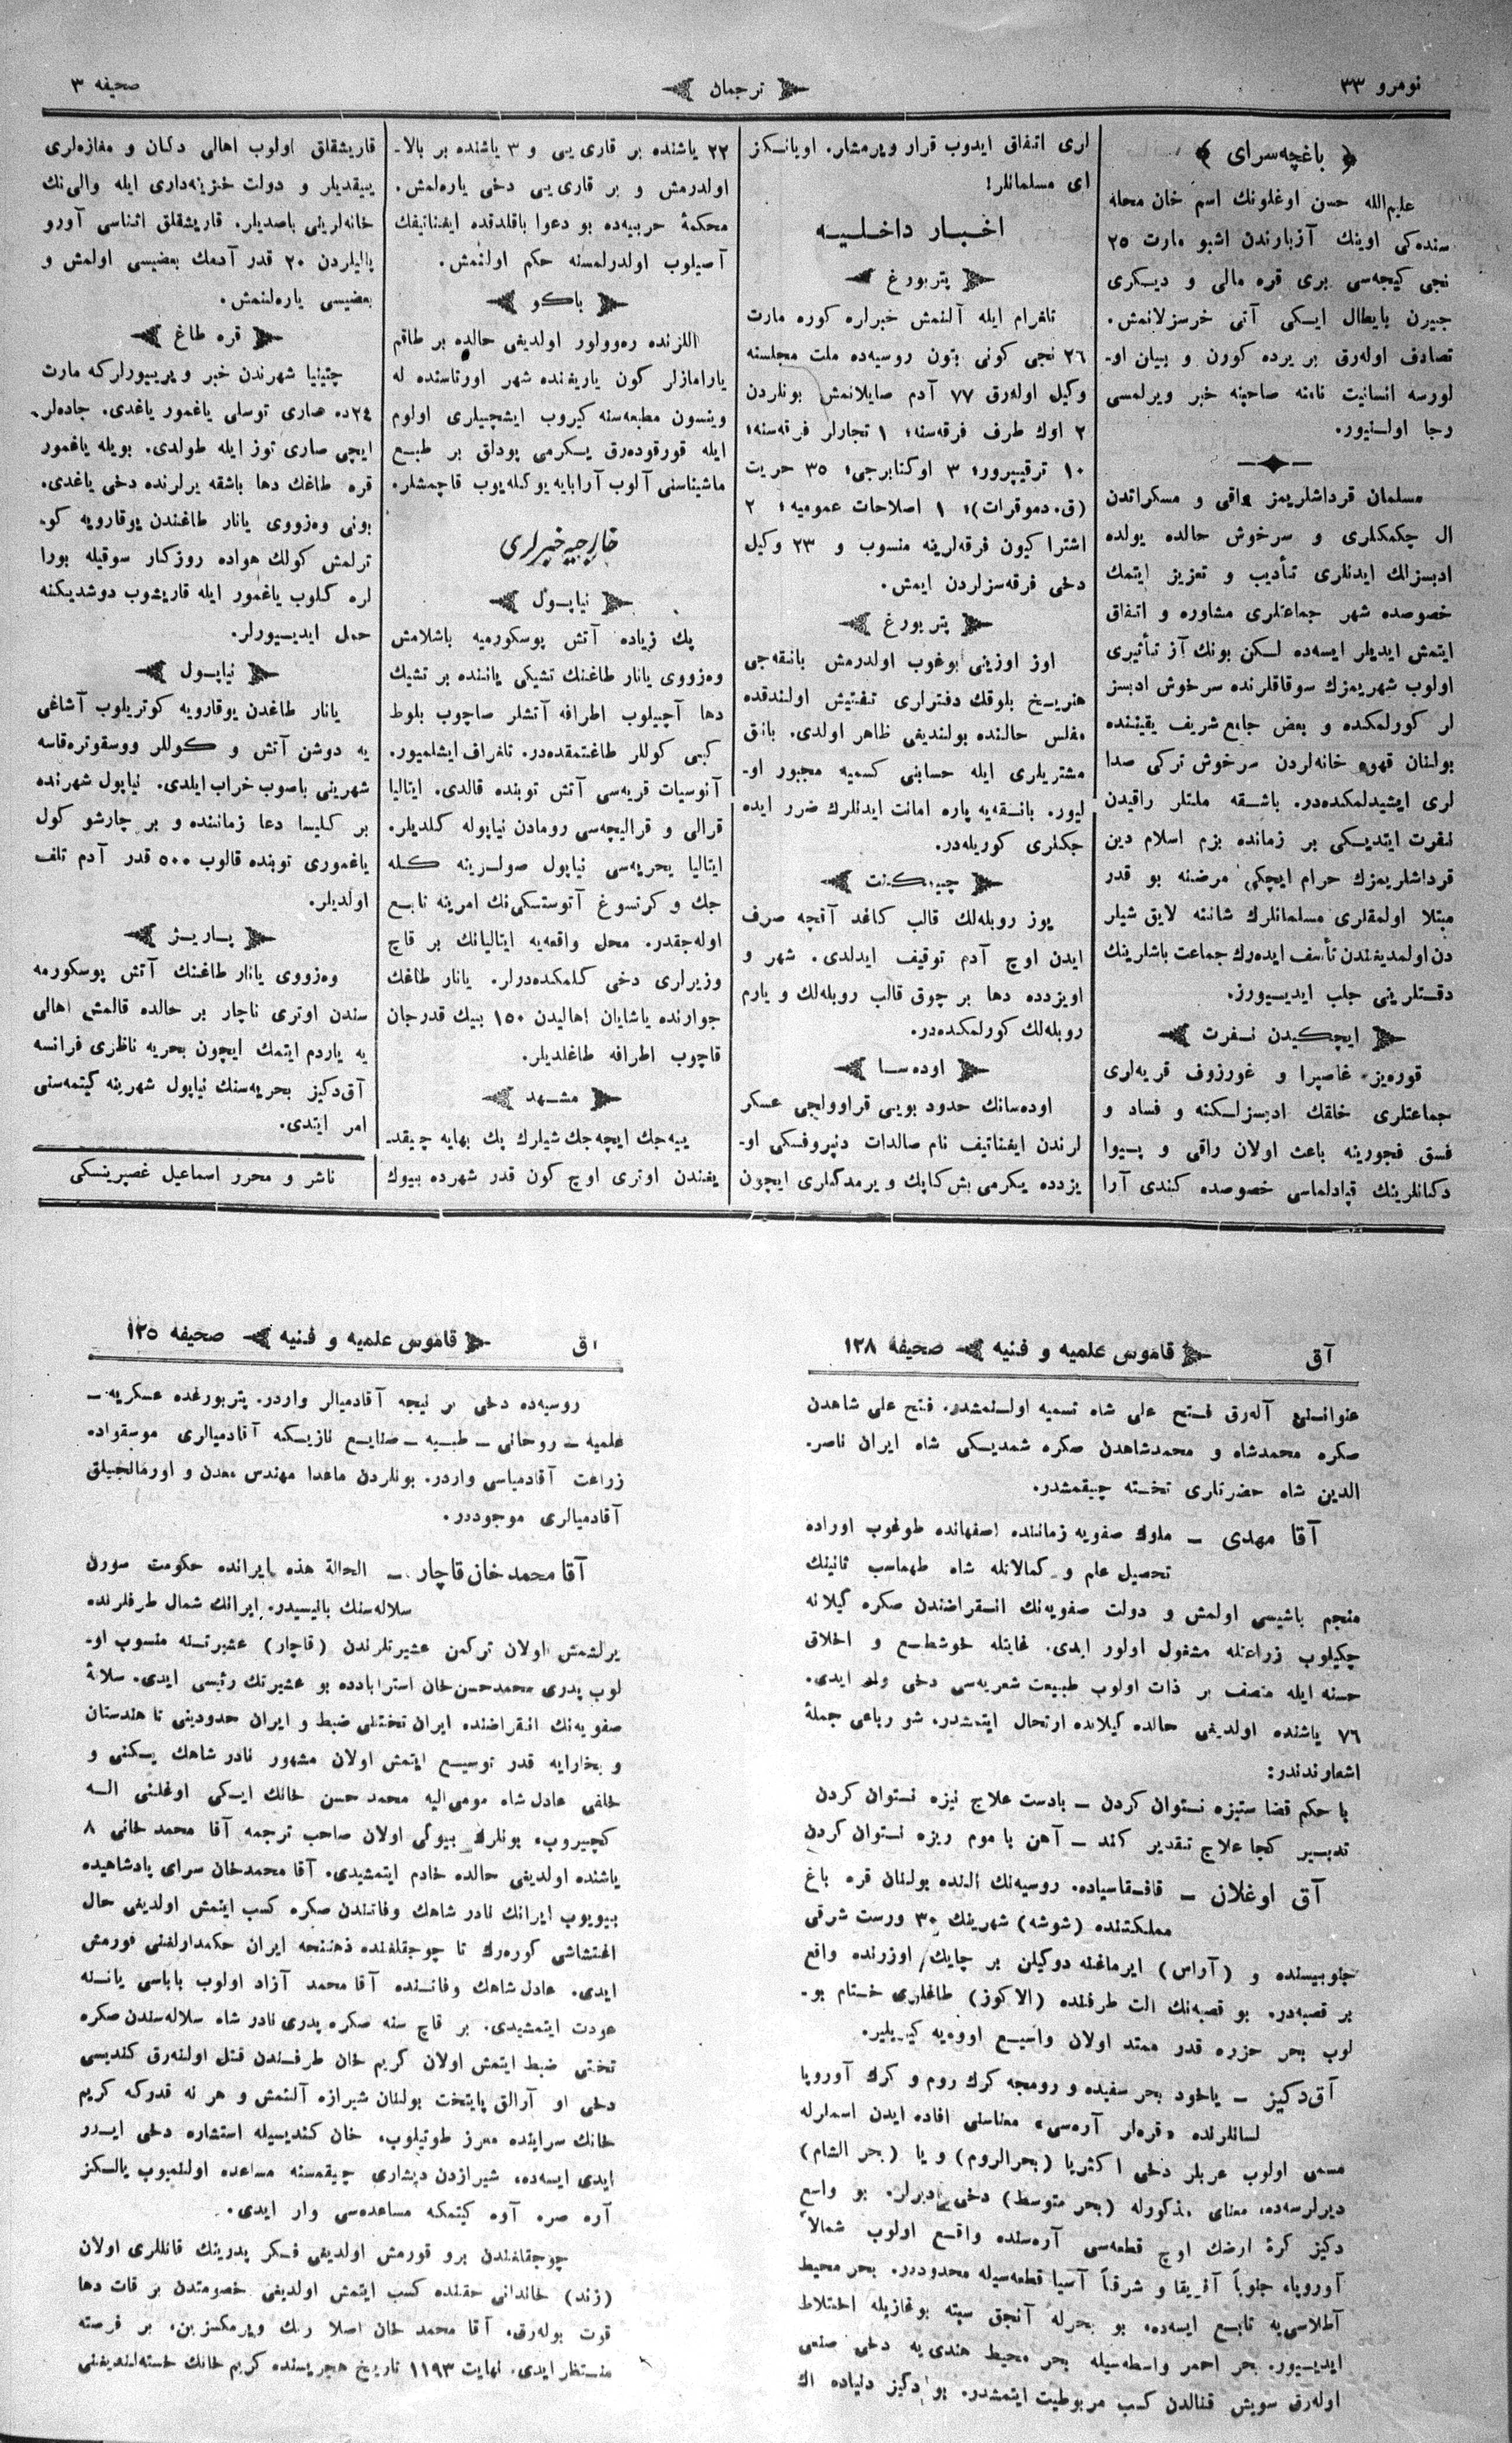 نومرو ٣٣
ترجمان
صحيفه ٣
باغچه‌سراى
عليم‌الله حسن اوغلونك اسم خان محله
سنده‌كى اوينك آزبارندن اشبو مارت ٢٥
نجى كيجه‌سى برى قره مالى و ديكرى
جيرن بايطال ايكى آتى خرسزلانمش.
تصادف اوله‌رق بر يرده كورن و بيلن او-
لورسه انسانيت نامنه صاحبنه خبر ويرلمسى
رجا اولنيور.
مسلمان قرداشلريمز عاقى و مسكراتدن
ال چكمكلرى و سرخوش حالده يولده
ادبسزلك ايدنلرى تأديب و تعزيز ايتمك
خصوصده شهر جماعتلرى مشاوره و اتفاق
ايتمش ايديلر ايسه‌ده لكن بونك آز تأثيرى
اولوب شهريمزك سوقاقلرنده سرخوش ادبسز
لر كورلمكده و بعض جامع شريف يقيننده
بولنان قهوه خانه‌لردن سرخوش تركى صدا
لرى ايشيدلمكده‌در. باشقه ملتلر راقيدن
نفرت ايتديكى بر زمانده بزم اسلام دين
قرداشلريمزك حرام ايچكى مرضنه بو قدر
مبتلا اولمقلرى مسلمانلرك شاننه لايق شيلر
دن اولمديغندن تأسف ايده‌رك جماعت باشلرينك
دقتلرينى جلب ايديسيورز.
ايچكيدن نفرت
قوره‌يز، غاصپرا و غورزوف قريه‌لرى
جماعتلرى خلقك ادبسزلكنه و فساد و
فسق فجورينه باعث اولان راقى و پسيوا
دكانلرينك قپادلماسى خصوصده كندى آرا
لرى اتفاق ايدوب قرار ويرمشلر. اويانكز
اى مسلمانلر!
اخبار داخليه
پتربورغ
تلغرام ايله آلنمش خبرلره كوره مارت
٢٦ نجى كونى بتون روسيه‌ده ملت مجلسنه
وكيل اوله‌رق ٧٧ آدم صايلانمش بونلردن
٢ اوك طرف فرقه‌سنه؛ ١ تجارلر فرقه‌سنه؛
١٠ ترقيپرور؛ ٣ اوكتابرجى؛ ٣٥ حريت
(ق. دموقرات)؛ ١ اصلاحات عموميه؛ ٢
اشتراكيون فرقه‌لرينه منسوب و ٢٣ وكيل
دخى فرقه‌سزلردن ايمش.
پتربورغ
اوز اوزينى بوغوب اولدرمش بانقه‌جى
هنريخ بلوقك دفترلرى تفتيش اولندقده
مفلس حالنده بولنديغى ظاهر اولدى. بانق
مشتريلرى ايله حسابنى كسميه مجبور او-
ليور. بانقه‌يه پاره امانت ايدنلرك ضرر ايده
جكلرى كوريله‌در.
چيمكنت
يوز روبله‌لك قالب كاغد آقچه صرف
ايدن اوچ آدم توقيف ايدلدى. شهر و
اويزدده دها بر چوق قالب روبله‌لك و يارم
روبله‌لك كورلمكده‌در.
اوده‌سا
اوده‌سانك حدود بويى قراوولجى عسكر
لرندن ايغناتيف نام صالدات دنپروفسكى او-
يزدده يكرمى بش كاپك ويرمدكلرى ايچون
٢٢ ياشنده بر قارى يى و ٣ ياشنده بر بالا-
اولدرمش و بر قارى يى دخى ياره‌لمش.
محكمهٔ حربيه‌ده بو دعوا باقلدقده ايغناتيفك
آصيلوب اولدرلمسنه حكم اولنمش.
باكو
اللرنده ره‌وولور اولديغى حالده بر طاقم
يارامازلر كون ياريغنده شهر اورتاسنده له
وينسون مطبعه‌سنه كيروب ايشچيلرى اولوم
ايله قورقوده‌رق يكرمى پودلق بر طبع
ماشيناسنى آلوب آرابايه يوكله‌يوب قاچمشلر.
خارجيه خبرلرى
نياپول
پك زياده آتش پوسكورميه باشلامش
وه‌زووى يانار طاغنك تشيكى ياننده بر تشيك
دها آچيلوب اطرافه آتشلر صاچوب بلوط
كبى كوللر طاغتمقده‌در. تلغراف ايشلميور.
آنوسيات قريه‌سى آتش توبنده قالدى. ايتاليا
قرالى و قراليچه‌سى رومادن نياپوله كلديلر.
ايتاليا بحريه‌سى نياپول صولرينه كله
جك و كرنسوغ آئوستسكى‌نك امرينه تابع
اوله‌جقدر. محل واقعه‌يه ايتاليانك بر قاچ
وزيرلرى دخى كلمكده‌درلر. يانار طاغك
جوارنده ياشايان اهاليدن ١٥٠ بيك قدرجان
قاچوب اطرافه طاغلديلر.
مشهد
ييه‌جك ايچه‌جك شيلرك پك بهايه چيقد-
يغندن اوترى اوچ كون قدر شهرده بيوك
قاريشقلق اولوب اهالى دكان و مغازه‌لرى
ييقديلر و دولت خزينه‌دارى ايله والى‌نك
خانه‌لرينى باصديلر. قاريشقلق اثناسى آورو
پاليلردن ٢٠ قدر آدمك بعضيسى اولمش و
بعضيسى ياره‌لنمش.
قره طاغ
چتينيا شهرندن خبر ويريپورلركه مارت
٢٤ده صارى توسلى ياغمور ياغدى. جاده‌لر
ايچى صارى توز ايله طولدى. بويله ياغمور
قره طاغك دها باشقه يرلرنده دخى ياغدى.
بونى وه‌زووى يانار طاغندن يوقارويه كو-
ترلمش كولك هواده روزكار سوقيله بورا
لره كلوب ياغمور ايله قاريشوب دوشديكنه
حمل ايديسيورلر.
نياپول
يانار طاغدن يوقارويه كوتريلوب آشاغى
يه دوشن آتش و كوللر ووسقوتره‌قاسه
شهرينى باصوب خراب ايلدى. نياپول شهرنده
بر كليسا دعا زماننده و بر چارشو كول
ياغمورى توبنده قالوب ٥٠٠ قدر آدم تلف
اولديلر.
پاريژ
وه‌زووى يانار طاغنك آتش پوسكورمه
سندن اوترى ناچار بر حالده قالمش اهالى
يه ياردم ايتمك ايچون بحريه ناظرى فرانسه
آق‌دكيز بحريه‌سنك نياپول شهرينه كيتمه‌سنى
امر ايتدى.
ناشر و محرر اسماعيل غصپرينسكى
آق
قاموس علميه و فنيه
صحيفه ١٢٨
عنوانسنى آله‌رق فتح على شاه تسميه اولنمشدر. فتح على شاهدن
صكره محمدشاه و محمدشاهدن صكره شمديكى شاه ايران ناصر-
الدين شاه حضرتلرى تخته چيقمشدر.
آقا مهدى — ملوك صفويه زماننده اصفهانده طوغوب اوراده
تحصيل علم و كمالاتله شاه طهماسب ثانينك
منجم باشيسى اولمش و دولت صفويه‌نك انقراضندن صكره كيلانه
چكيلوب زراعتله مشغول اولور ايدى. غايتله خوشطبع و اخلاق
حسنه ايله متصف بر ذات اولوب طبيعت شعريه‌سى دخى وار ايدى.
٧٦ ياشنده اولديغى حالده كيلانده ارتحال ايتمشدر. شو رباعى جملهٔ
اشعارندندر:
با حكم قضا ستيزه نتوان كردن — بادست علاج نيزه نتوان كردن
تدبير كجا علاج تقدير كند — آهن با موم ريزه نتوان كردن
آق اوغلان — قافقاسياده. روسيه‌نك النده بولنان قره باغ
مملكتنده (شوشه) شهرينك ٣٠ ورست شرقى
جنوبيسنده و (آراس) ايرماغنه دوكيلن بر چايك اوزرنده واقع
بر قصبه‌در. بو قصبه‌نك الت طرفنده (الاكوز) طاغلرى ختام بو-
لوب بحر حزره قدر ممتد اولان واسيع اووه‌يه كيريلير.
آق‌دكيز — ياخود بحر سفيده و رومجه كرك روم و كرك آوروپا
لسانلرنده «قره‌لر آره‌سى» معناسنى افاده ايدن اسملرله
مسمى اولوب عربلر دخى اكثريا (بحرالروم) و يا (بحر الشام)
ديرلرسه‌ده، معناى مذكورله (بحر متوسط) دخى ديرلر. بو واسع
دكيز كرهٔ ارضك اوچ قطعه‌سى آره‌سنده واقع اولوب شمالاً
آوروپا، جنوباً آفريقا و شرقاً آسيا قطعه‌سيله محدوددر. بحر محيط
آطلاسى‌يه تابع ايسه‌ده، بو بحرله آنجق سبته بوغازيله اختلاط
ايديسيور. بحر احمر واسطه‌سيله بحر محيط هندى‌يه دخى صنعى
اوله‌رق سويش قنالدن كسب مربوطيت ايتمشدر. بو دكيز دنياده اك
اق
قاموس علميه و فنيه
صحيفه ١٢٥
روسيه‌ده دخى بر نيجه آقادميالر واردر. پتربورغده عسكريه —
علميه — روحانى — طبيه — صنايع نازيكنه آقادميالرى موسقواده
زراعت آقادمياسى واردر. بونلردن ماعدا مهندس معدن و اورمانجيلق
آقادميالرى موجوددر.
آقا محمد خان قاچار — الحالة هذه ايرانده حكومت سورن
سلاله‌سنك بانيسيدر. ايرانك شمال طرفلرنده
يرلشمش اولان تركمن عشيرتلرندن (قاچار) عشيرتنه منسوب او-
لوب پدرى محمدحسن خان استرابادده بو عشيرتك رئيسى ايدى. سلالهٔ
صفويه‌نك انقراضنده ايران تختنى ضبط و ايران حدودينى تا هندستان
و بخارايه قدر توسيع ايتمش اولان مشهور نادر شاهك يكنى و
خلفى عادل شاه مومى‌اليه محمد حسن خانك ايكى اوغلنى اله
كچيروب، بونلرك بيوكى اولان صاحب ترجمه آقا محمد خانى ٨
ياشنده اولديغى حالده خادم ايتمشيدى. آقا محمدخان سراى پادشاهيده
بيويوب ايرانك نادر شاهك وفاتندن صكره كسب ايتمش اولديغى حال
اغتشاشى كوره‌رك تا چوجقلغنده ذهننجه ايران حكمدارلغنى قورمش
ايدى. عادل شاهك وفاتنده آقا محمد آزاد اولوب باباسى ياننه
عودت ايتمشيدى. بر قاچ سنه صكره پدرى نادر شاه سلاله‌سندن صكره
تختى ضبط ايتمش اولان كريم خان طرفندن قتل اولنه‌رق كنديسى
دخى او آرالق پايتخت بولنان شيرازه آلنمش و هر نه قدركه كريم
خانك سراينده معزز طوتيلوب، خان كنديسيله استشاره دخى ايدر
ايدى ايسه‌ده، شيرازدن ديشارى چيقمسنه مساعده اولنميوب يالكز
آره صره آوه كيتمكه مساعده‌سى وار ايدى.
چوجقلغندن برو قورمش اولديغى فكر پدرينك قاتللرى اولان
(زند) خاندانى حقنده كسب ايتمش اولديغى خصومتدن بر قات دها
قوت بوله‌رق، آقا محمد خان اصلا رنك ويرمكسزين، بر فرصته
منتظر ايدى. نهايت ١١٩٣ تاريخ هجريسنده كريم خانك خسته‌لنديغنى